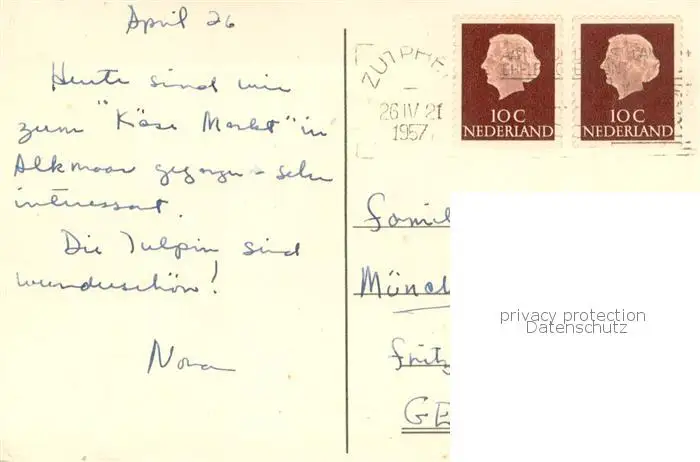 April 26
Heute sind wir
zum "Käse Markt" in
Alkmaar gegangen - sehr
interessant.
Die Tulpin sind
wunderschön!
Nora
ZUTPHE
26 IV 21
1957
10 C
NEDERLAND
10 C
NEDERLAND
Famil
Münc
Fritz
GE
privacy protection
Datenschutz